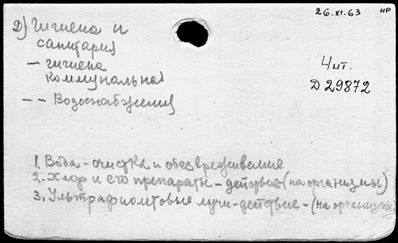 26.XI.63 НР
2) Гигиена и
санитария
– гигиена
коммунальная
– – Водоснабжения
4 ит.
Д 29872
1. Вода – очистка и обезвреживание
2. Хлор и его препараты – действие (на организмы)
3. Ультрафиолетовые лучи – действие – (на организм